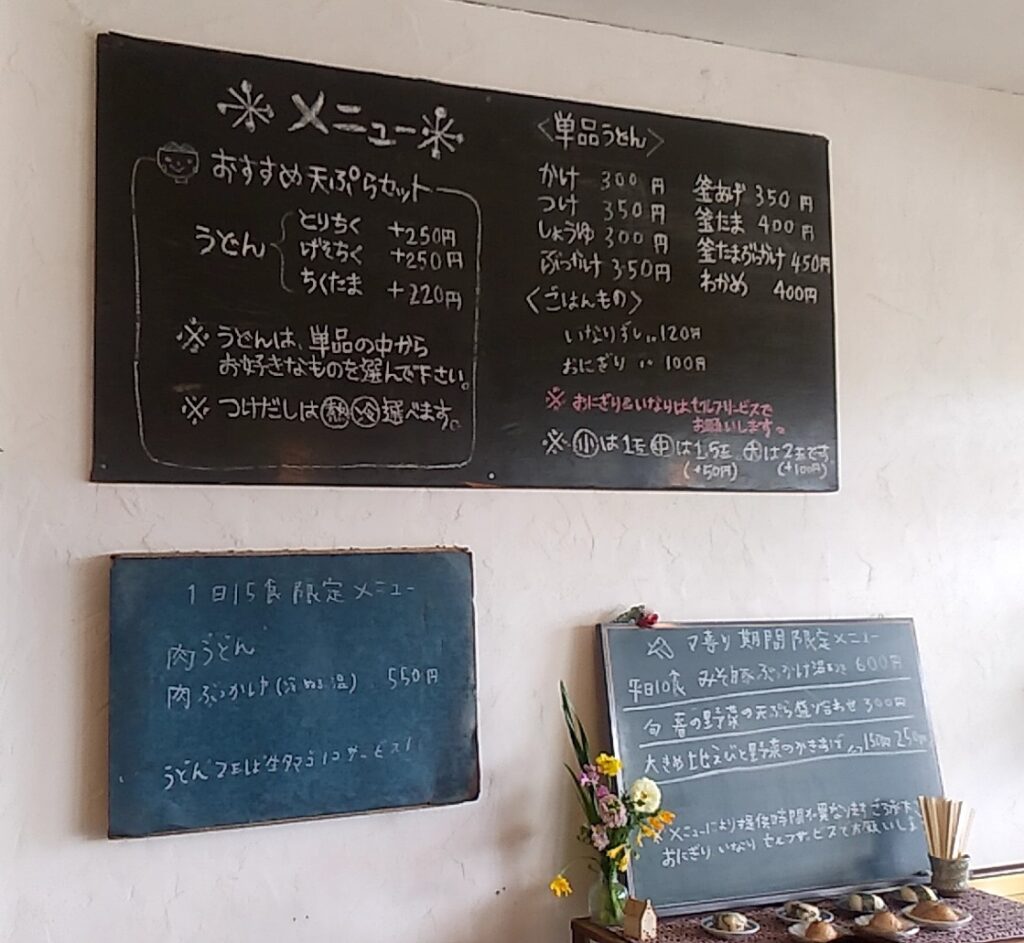 メニュー
おすすめ天ぷらセット
うどん
とりちく +250円
げそちく +250円
ちくたま +220円
※ うどんは、単品の中から
お好きなものを選んで下さい。
※ つけだしは熱冷選べます。
〈単品うどん〉
かけ 300円
つけ 350円
しょうゆ 300円
ぶっかけ 350円
釜あげ 350円
釜たま 400円
釜たまぶっかけ 450円
わかめ 400円
〈ごはんもの〉
いなりずし 120円
おにぎり 100円
※ おにぎり&いなりはセルフサービスで
お願いします。
※ 小は1玉 中は1.5玉 大は2玉です
(+50円) (+100円)
1日15食限定メニュー
肉うどん
肉ぶっかけ 550円
期間限定メニュー
平日10食 みそ豚ぶっかけ 600円
旬 春の野菜の天ぷら盛り合わせ 300円
大きめ 野菜のかきあげ 250
※ メニューにより提供時間が異なります
おにぎり いなり セルフサービスでお願いしま